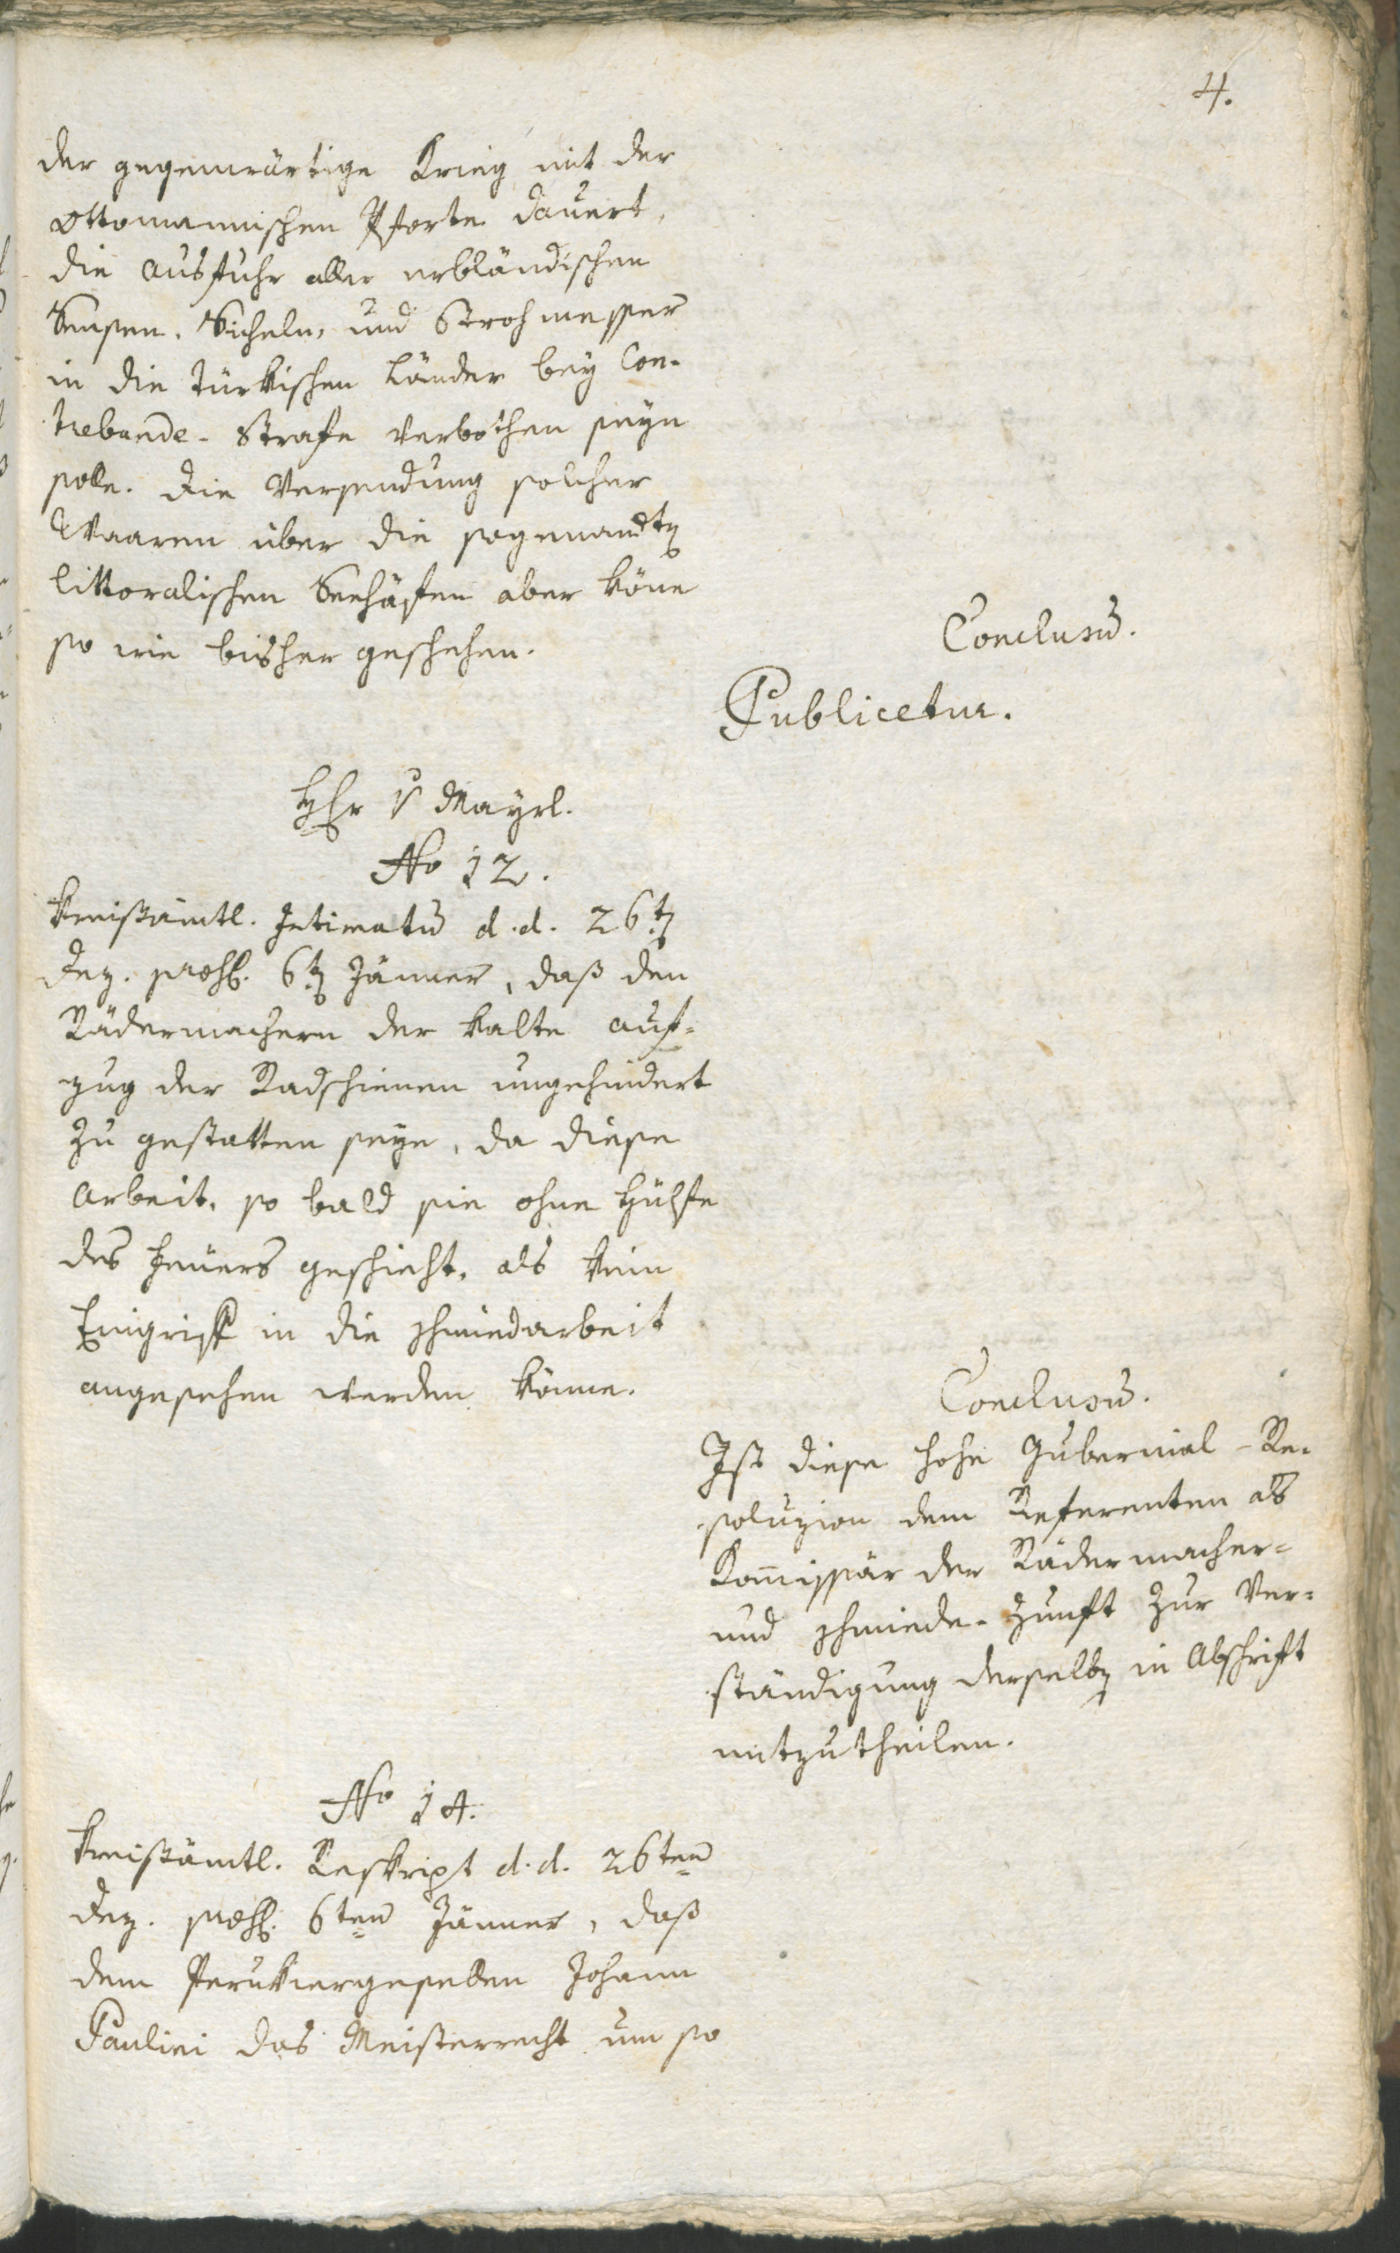 4.
der gegenwärtige Krieg mit der
Ottomannischen Pforte dauert,
die Ausfuhr aller erbländischen
Sensen, Sicheln, und Strohmesser
in die Türkischen Länder bey Con-
trebande-Strafe verbothen seyn
solle. Die Versendung solcher
Waaren über die sogenandten
littoralischen Seehäfen aber köne
so wie bisher geschehen.
Conclusum.
Publicetur.
Hhr v Mayrl.
No 12.
Kreißämtl. Intimatum d. d. 26ten
Dez. praes. 6ten Jänner, daß den
Rädermachern der kalte Auf-
zug der Radschienen ungehindert
zu gestatten seye, da diese
Arbeit, so bald sie ohne Hülfe
des Feuers geschieht, als kein
Eingriff in die Schmiedarbeit
angesehen werden könne.
Conclusum.
Ist diese hohe Gubernial-Re-
soluzion dem Referenten als
Kommissär der Rädermacher-
und Schmiede-Zunft zur Ver-
ständigung derselben in Abschrift
mitzutheilen.
No 14.
Kreißämtl. Reskript d. d. 26ten
Dez. praes. 6ten Jänner, daß
dem Perukiergesellen Johann
Paulini das Meisterrecht um so